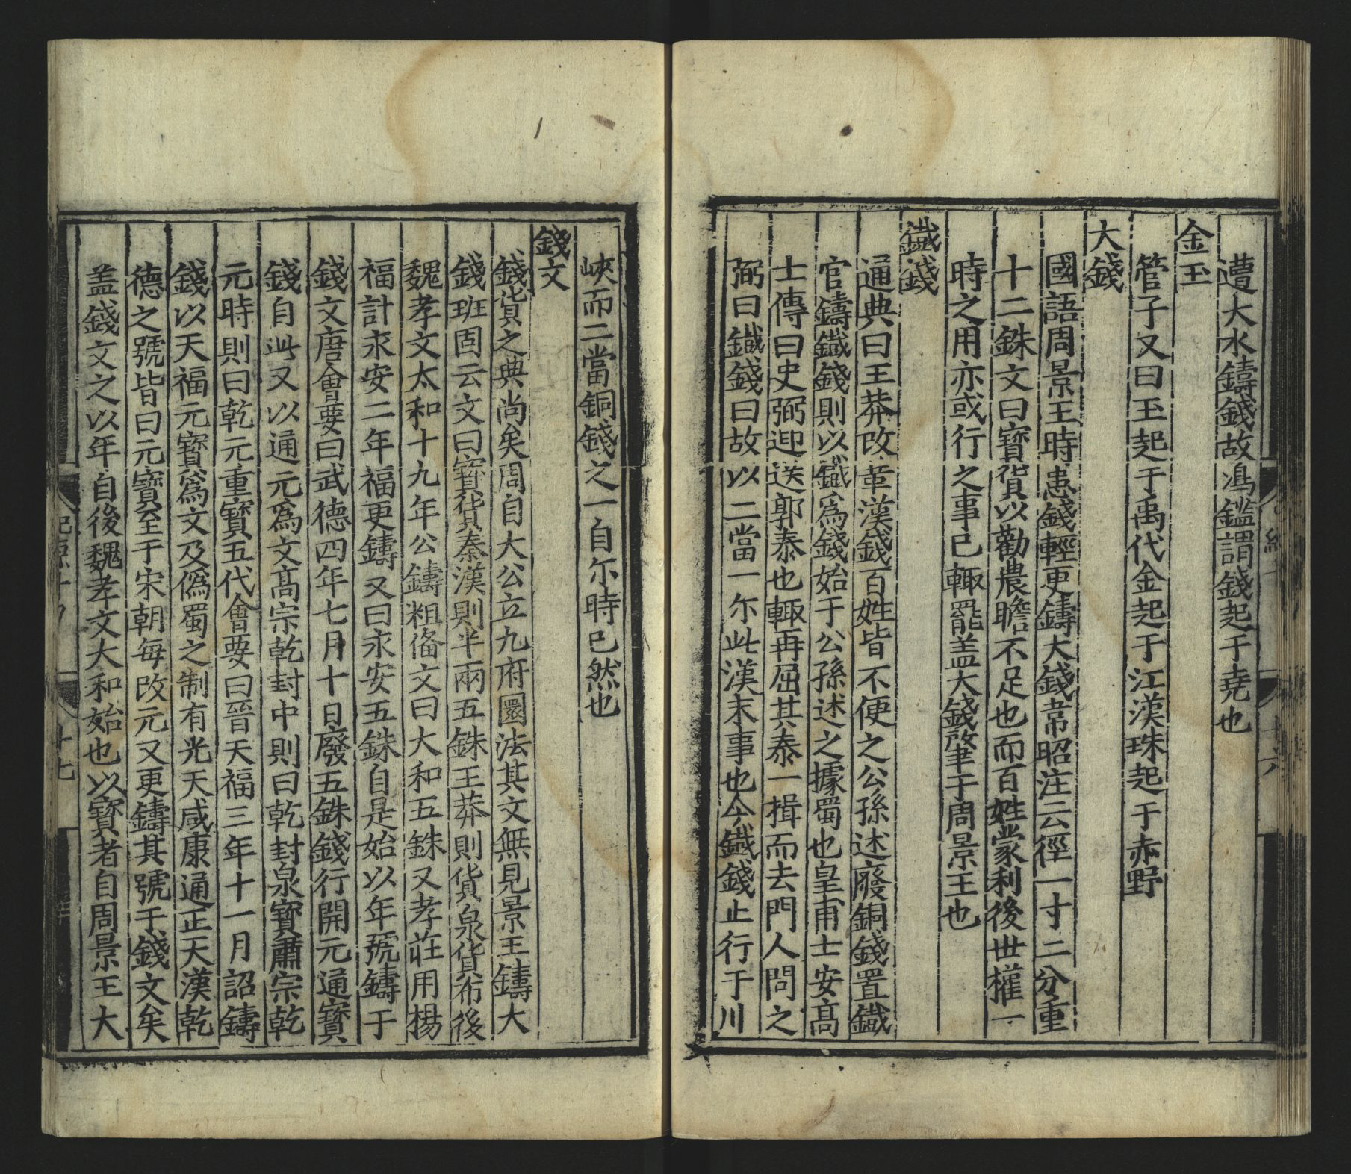 遭大水鑄錢故馮鑑謂錢起于堯也
金玉
管子又曰玉起于禹代金起于江漢珠起于赤野
大錢
國語周景王時患錢輕更鑄大錢韋昭注云徑一寸二分重
十二銖文曰寳貨以勸農贍不足也而百姓蒙利後世權一
時之用亦或行之事已輙罷盖大錢肇于周景王也
鐵錢
通典曰王莽改革漢錢百姓皆不便之公孫述廢銅錢置鐵
官鑄鐵錢則以鐵為錢始于公孫述之據蜀也皇甫士安高
士傳曰史弼迎送郭泰也輙再屈其泰一揖而去門人問之
弼曰鐵錢曰故以二當一尓此漢末事也今鐵錢止行于川
峽而二當銅錢之一自尓時已然也
錢文
錢貨之典尚矣周自大公立九府圜法其文無見景王鑄大
錢班固云文曰寳貨秦漢則半兩五銖王莽則貨泉貨布後
魏孝文太和十九年公鑄粗俻文曰大和五銖又孝莊用楊
福計永安二年福更鑄又曰永安五銖自是始以年號鑄于
錢文唐會要曰武德四年七月十日廢五銖錢行開元通寳
錢自此又以通元為文高宗乾封中則曰乾封泉寳肅宗乾
元時則曰乾元重寳五代會要曰晉天福三年十一月詔鑄
錢以天福元寳為文及偽蜀之制有光天咸康通正天漢乾
德之號皆曰元寳至于宋朝每改元又更鑄其號于錢文矣
盖錢文之以年自後魏孝文大和始也以寳者自周景王大
十七